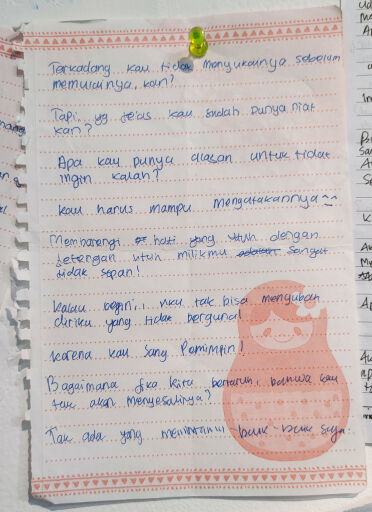 Terkadang kau tidak menyukainya sebelum
memulainya, kan?
Tapi, yg jelas kau sudah punya niat
kan?
Apa kau punya alasan untuk tidak
ingin kalah?
kau harus mampu mengatakannya
Membarengi hati yang utuh dengan
setengah utuh milikmu adalah sangat
tidak sopan!
Kalau begini, aku tak bisa mengubah
diriku yang tidak berguna!
Karena kau sang Pemimpin!
Bagaimana jika kita bertaruh, bahwa kau
tak akan menyesalinya?
Tak ada yang baik-baik saja.